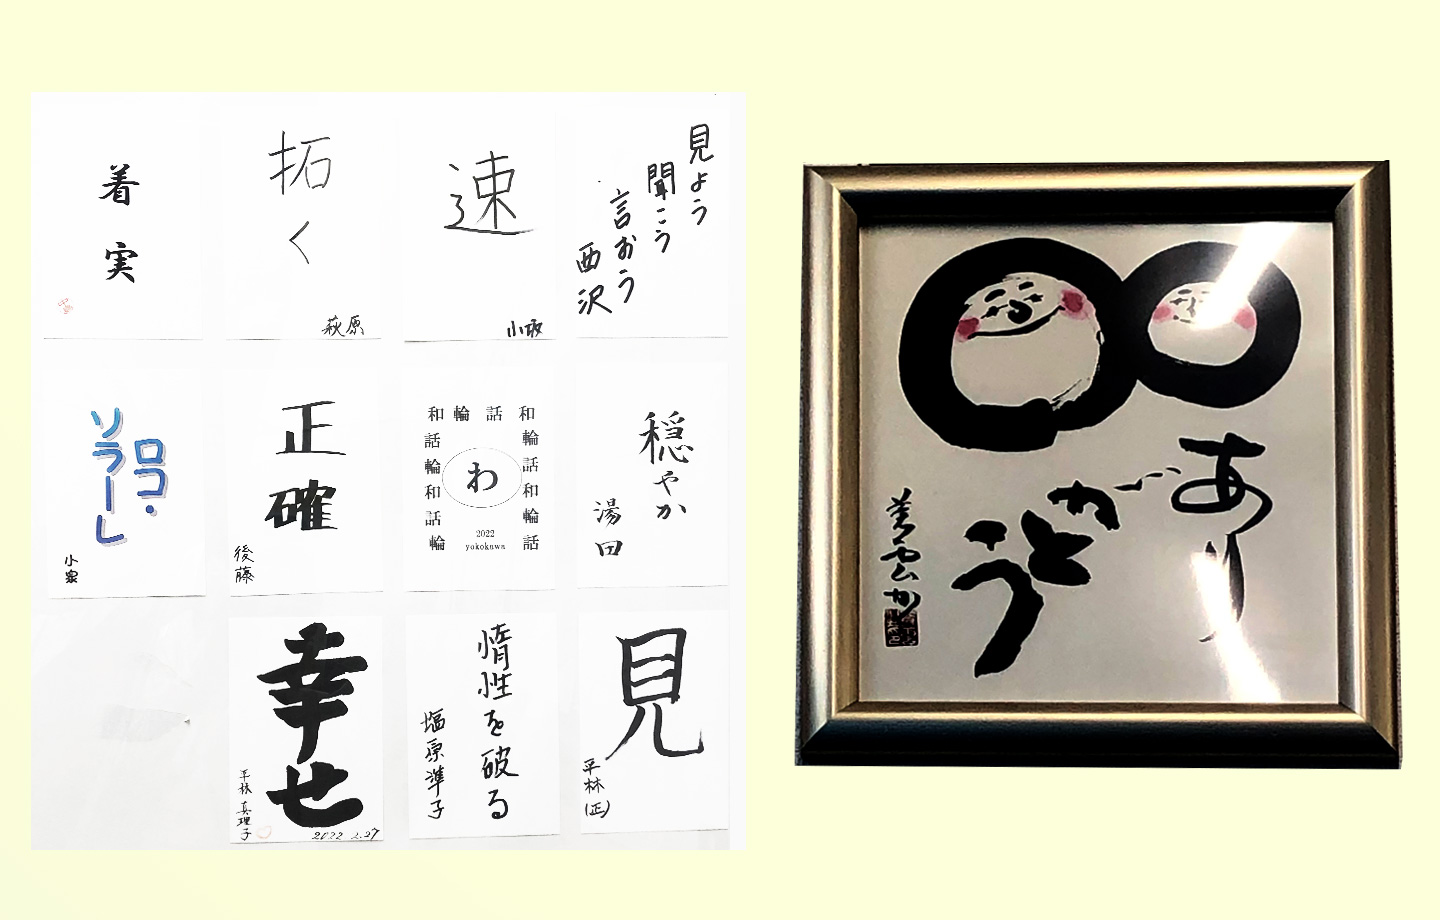 着実
拓く
萩原
速
小坂
見よう
聞こう
言おう
西沢
ロコ・
ソラーレ
小泉
正確
後藤
和輪話和
話輪
輪話
和和
話輪
輪話
わ
2022
yokokawa
穏やか
湯田
幸せ
平林真理子
2022 2.27
惰性を破る
塩原準子
見
平林(正)
ありがとう